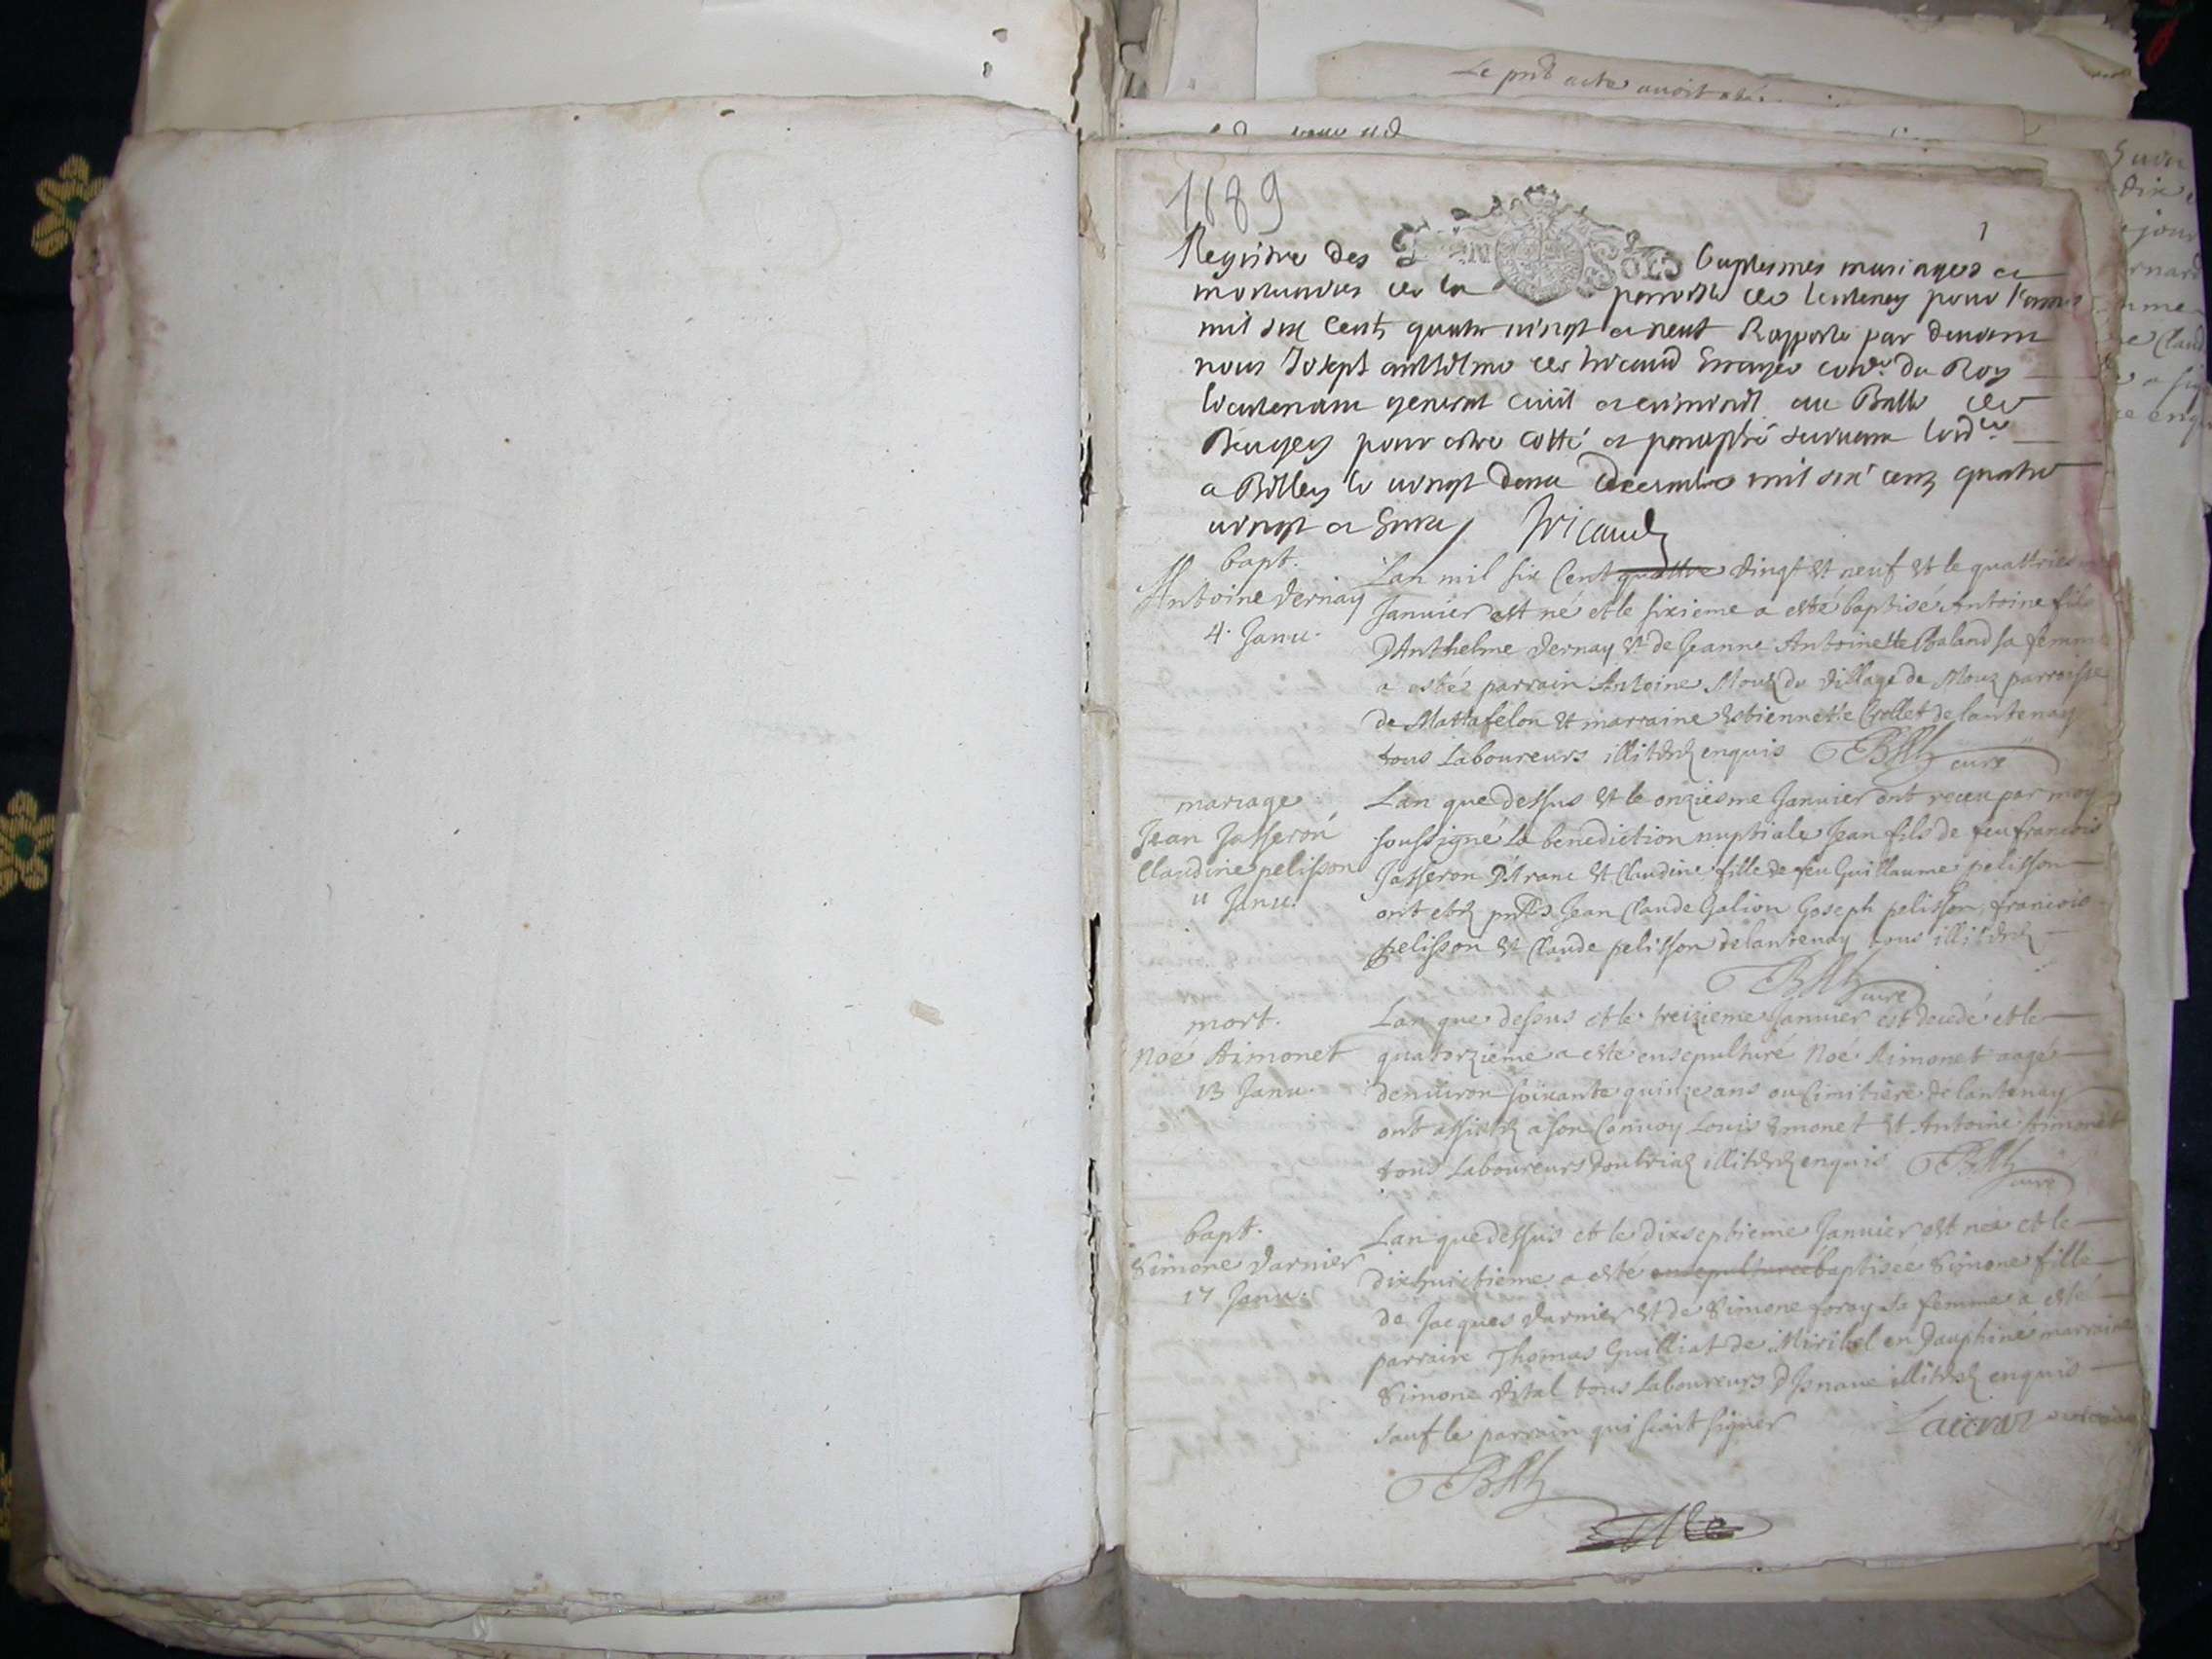 Le pnt acte avoit esté
1689
1
Registre des baptesmes mariages et
mortuaires de la parroisse de lantenay pour l'année
mil six Cents quatre vingt et neuf Rapporté par devant
nous Joseph anthelme de tricaud Escuyer con.er du Roy
lieutenant general civil et criminel au Balle de
Beugey pour estre cotté et paraphé suivant lord.ce
a Belley le vingt deux decembre mil six cens quatre
vingt et huict Tricaud
bapt.
Antoine vernay
4. Janu.
Lan mil six Cent quattre vingt et neuf et le quattriesme
Januier est né et le sixieme a esté baptisé Antoine fils
D'Anthelme vernay et de Jeanne Antoinette Baland sa femme
a esté parrain Antoine Mouz du village de Mouz parroisse
de Mattafelon et marraine Estiennette Crollet de lantenay
tous Laboureurs illiterez enquis curé
mariage
Jean Jasseron
Claudine pelisson
11 Janu.
Lan que dessus et le onziesme Januier ont receu par moy
soussigné La benediction nuptiale Jean fils de feu francois
Jasseron D'Aranc et Claudine fille de feu Guillaume pelisson
ont estez pntz Jean Claude Galion Joseph pelisson, francois
pelisson et Claude pelisson de lantenay tous illiterez
curé
mort.
Noé Aimonet
13 Janu.
Lan que dessus et le treizieme Januier est decedé et le
quatorzieme a esté ensepulturé Noé Aimonet aagé
denuiron soixante quinze ans au Cimitiere de lantenay
ont assistez a son Conuoy Louis Emonet et Antoine Aimonet
tous Laboureurs doutriaz illiterez enquis curé
bapt.
Simone varnier
17 Janu.
Lan que dessus et le dixseptieme Januier est née et le
dixhuictieme a esté ensepulturée baptisée Simone fille
de Jacques varnier et de Simone foray sa femme a esté
parrain Thomas Guilliat de Miribel en Dauphiné marraine
Simone vital tous Laboureurs D'Isnaue illiterez enquis
sauf le parrain qui scait signer